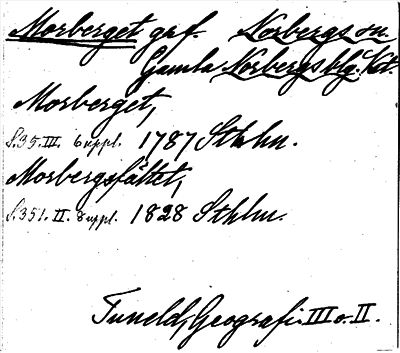 Morberget grf. Norbergs sn.
Gamla Norbergs blg. Vst.
Morberget,
S.35. III. 6 uppl. 1787 Sthlm.
Morbergsfältet,
S.351. II. 8 uppl. 1828 Sthlm.
Tuneld, Geografi. III o. II.